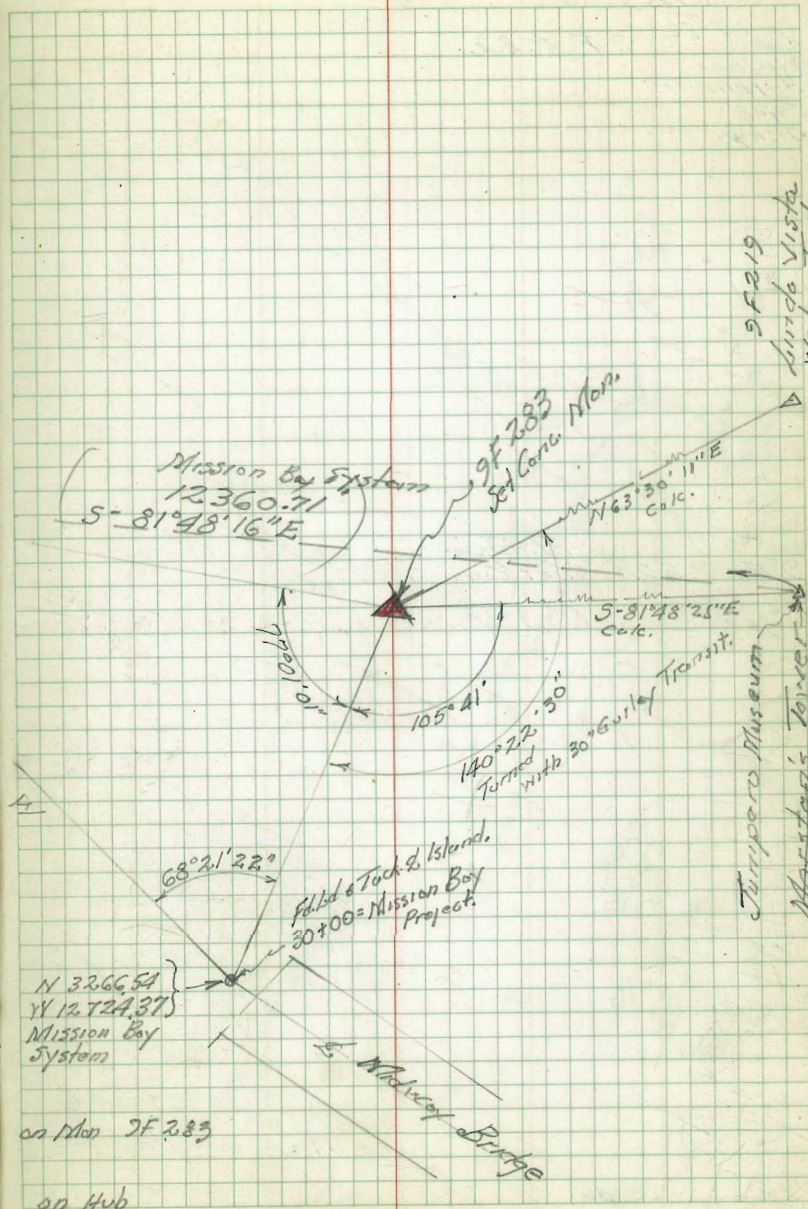 9F219
Linda Vista
9F 283
Set Conc. Mon.
Mission Bay System
12360.71
S- 81°48'16"E
N 63°30'11"E
Calc.
S-81°48'25"E
Calc.
105°41'
140°22'30"
Turned
with 30" Gurley Transit.
Junipero Museum
Marston's Tower
68°21'22"
Fd. Ld & Tack ℄ Island.
30+00 = Mission Bay
Project.
N 3266.54
W 12.724.37
Mission Bay
System
℄ Midway Bridge
on Mon 9F 283
on Hub